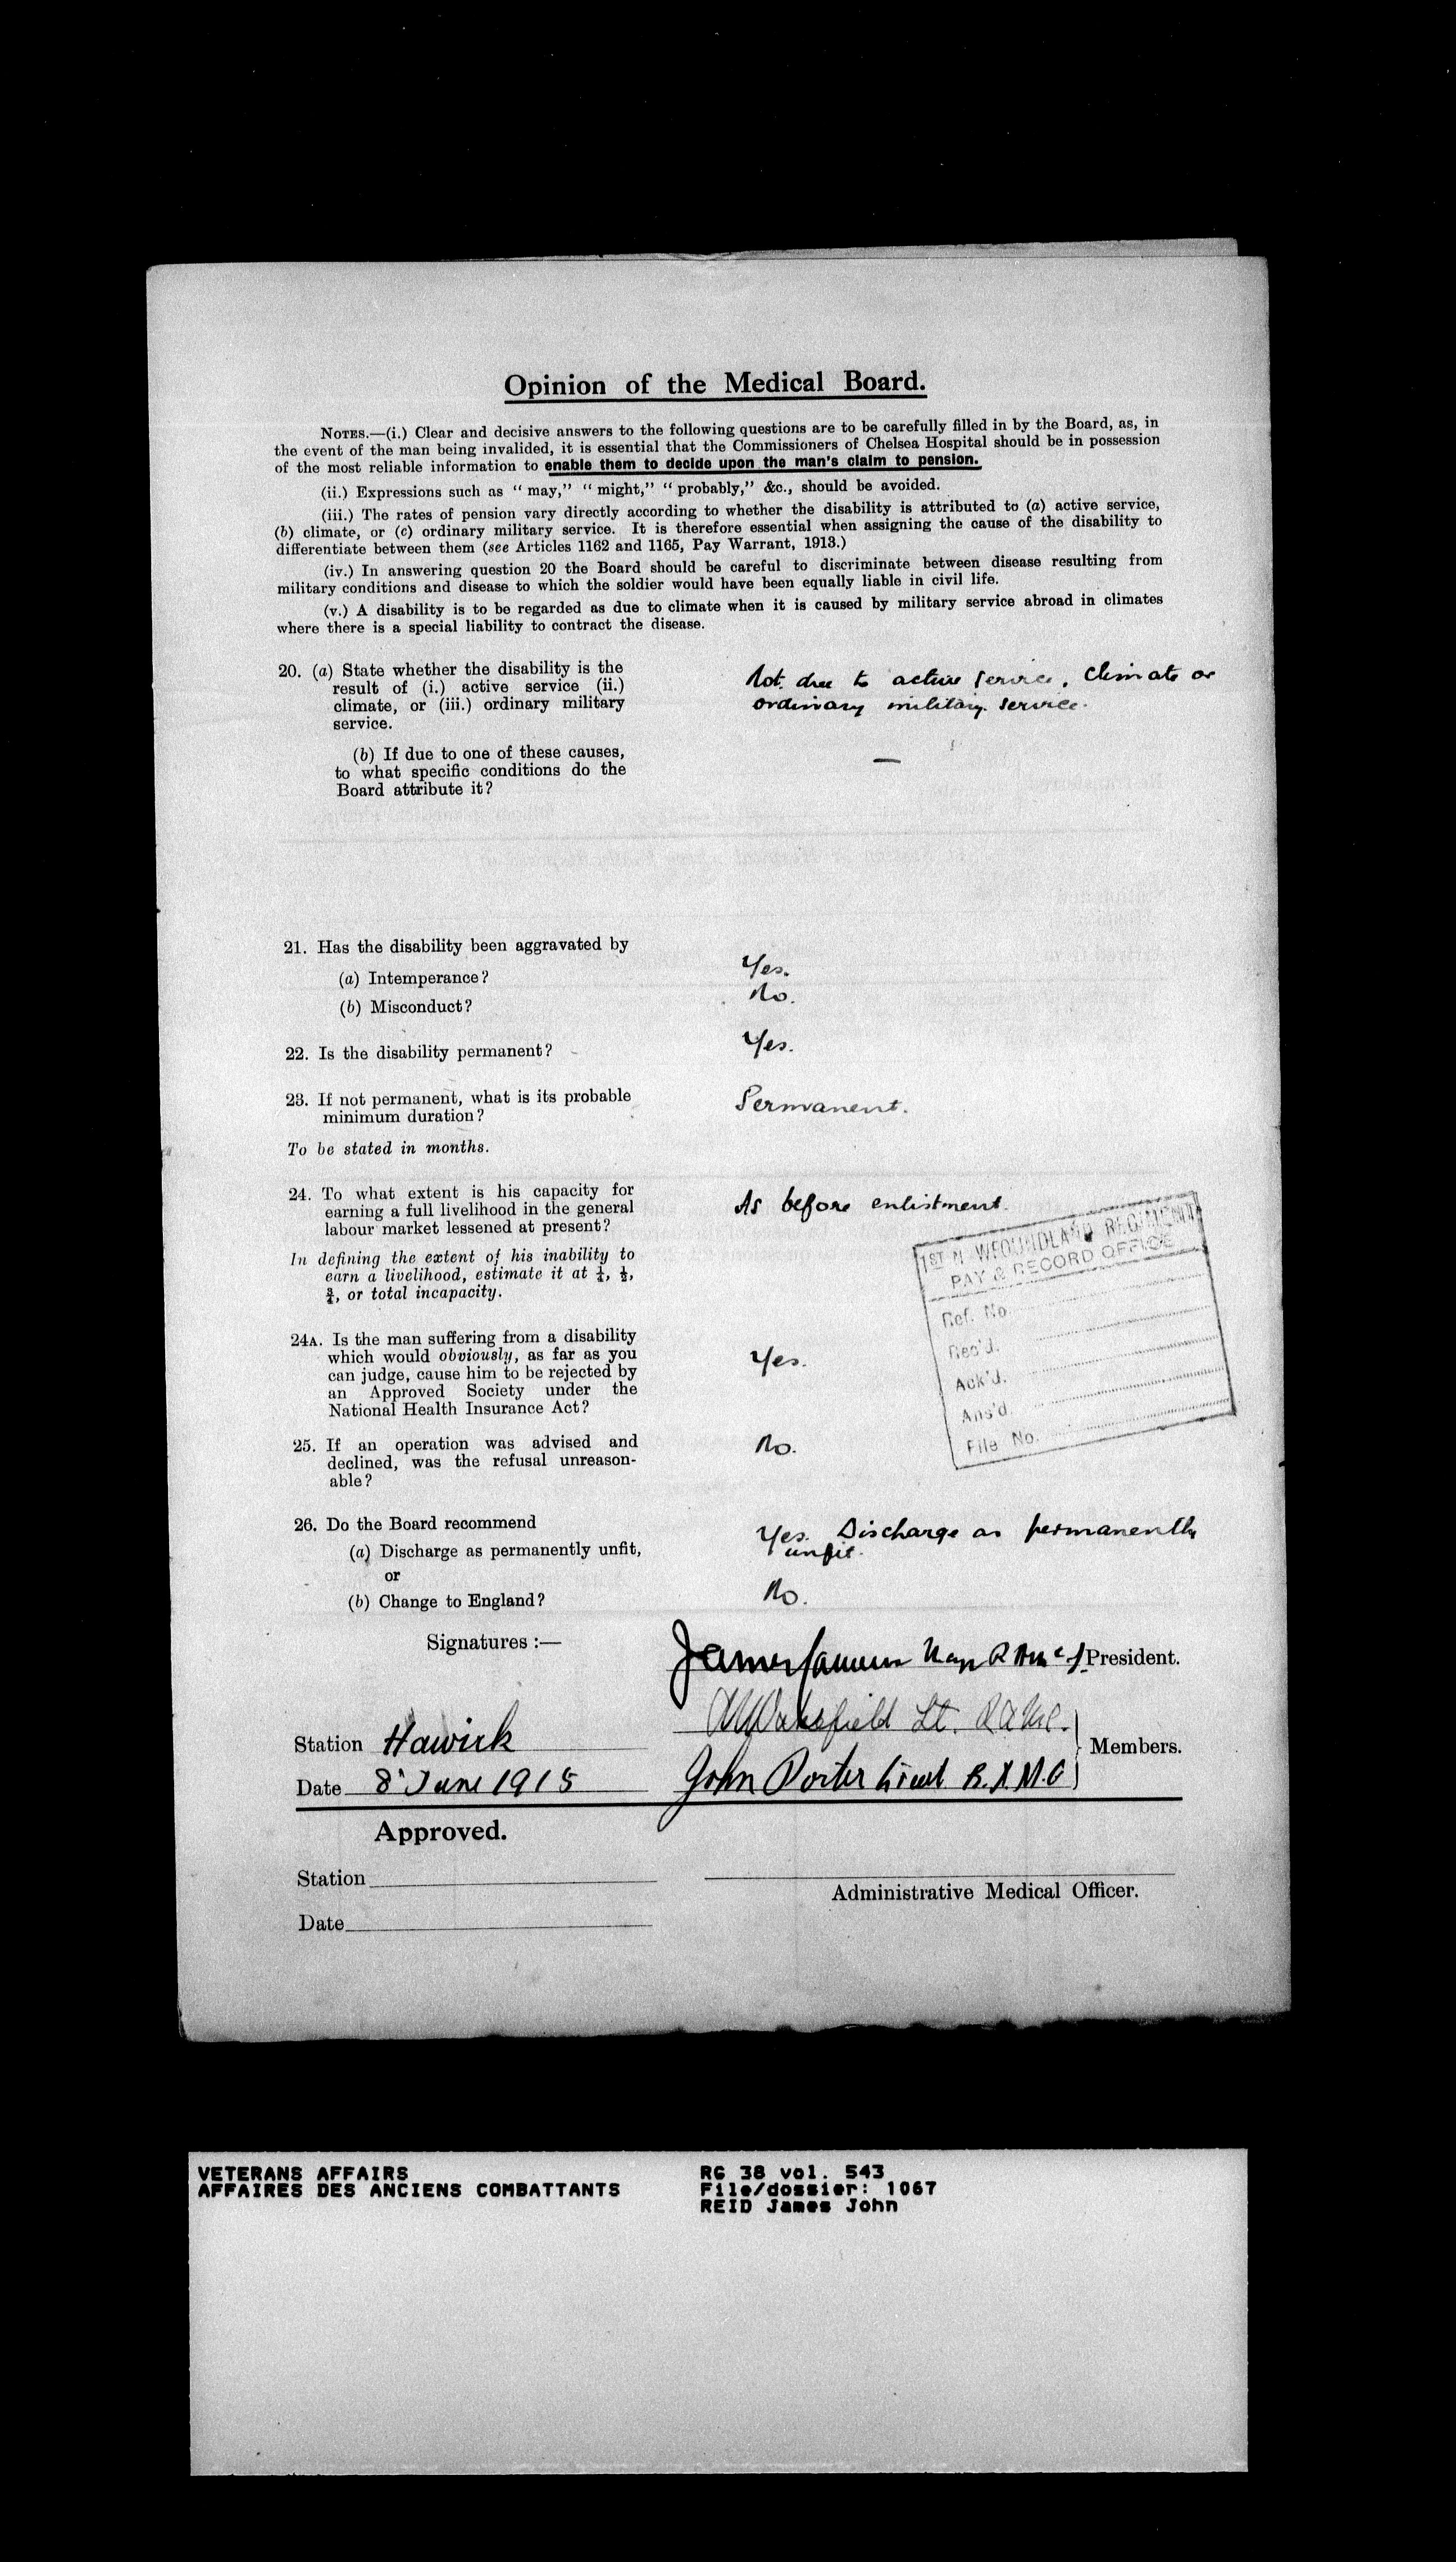 Opinion of the Medical Board.
NOTES.—(i.) Clear and decisive answers to the following questions are to be carefully filled in by the Board, as, in
the event of the man being invalided, it is essential that the Commissioners of Chelsea Hospital should be in possession
of the most reliable information to enable them to decide upon the man's claim to pension.
(ii.) Expressions such as “may,” “might,” “probably,” &c., should be avoided.
(iii.) The rates of pension vary directly according to whether the disability is attributed to (a) active service,
(b) climate, or (c) ordinary military service. It is therefore essential when assigning the cause of the disability to
differentiate between them (see Articles 1162 and 1165, Pay Warrant, 1913.)
(iv.) In answering question 20 the Board should be careful to discriminate between disease resulting from
military conditions and disease to which the soldier would have been equally liable in civil life.
(v.) A disability is to be regarded as due to climate when it is caused by military service abroad in climates
where there is a special liability to contract the disease.
20. (a) State whether the disability is the
result of (i.) active service (ii.)
climate, or (iii.) ordinary military
service.
Not due to active service, climate or
ordinary military service.
(b) If due to one of these causes,
to what specific conditions do the
Board attribute it?
—
21. Has the disability been aggravated by
(a) Intemperance? Yes.
(b) Misconduct? No.
22. Is the disability permanent? Yes.
23. If not permanent, what is its probable
minimum duration?
Permanent.
To be stated in months.
24. To what extent is his capacity for
earning a full livelihood in the general
labour market lessened at present?
As before enlistment.
In defining the extent of his inability to
earn a livelihood, estimate it at ¼, ½,
¾, or total incapacity.
1ST NEWFOUNDLAND REGIMENT
PAY & RECORD OFFICE
Ref. No.
Rec'd.
Ack'd.
Ans'd
File No.
24A. Is the man suffering from a disability
which would obviously, as far as you
can judge, cause him to be rejected by
an Approved Society under the
National Health Insurance Act?
Yes.
25. If an operation was advised and
declined, was the refusal unreason-
able?
No.
26. Do the Board recommend
(a) Discharge as permanently unfit,
or
Yes. Discharge as permanently
unfit.
(b) Change to England? No.
Signatures :—
James President.
Wakefield Lt. R.A.M.C.
Station Hawick Members.
John Porter Lieut R.A.M.C
Date 8 June 1915
Approved.
Station
Administrative Medical Officer.
Date
VETERANS AFFAIRS
AFFAIRES DES ANCIENS COMBATTANTS
RG 38 vol. 543
File/dossier: 1067
REID James John